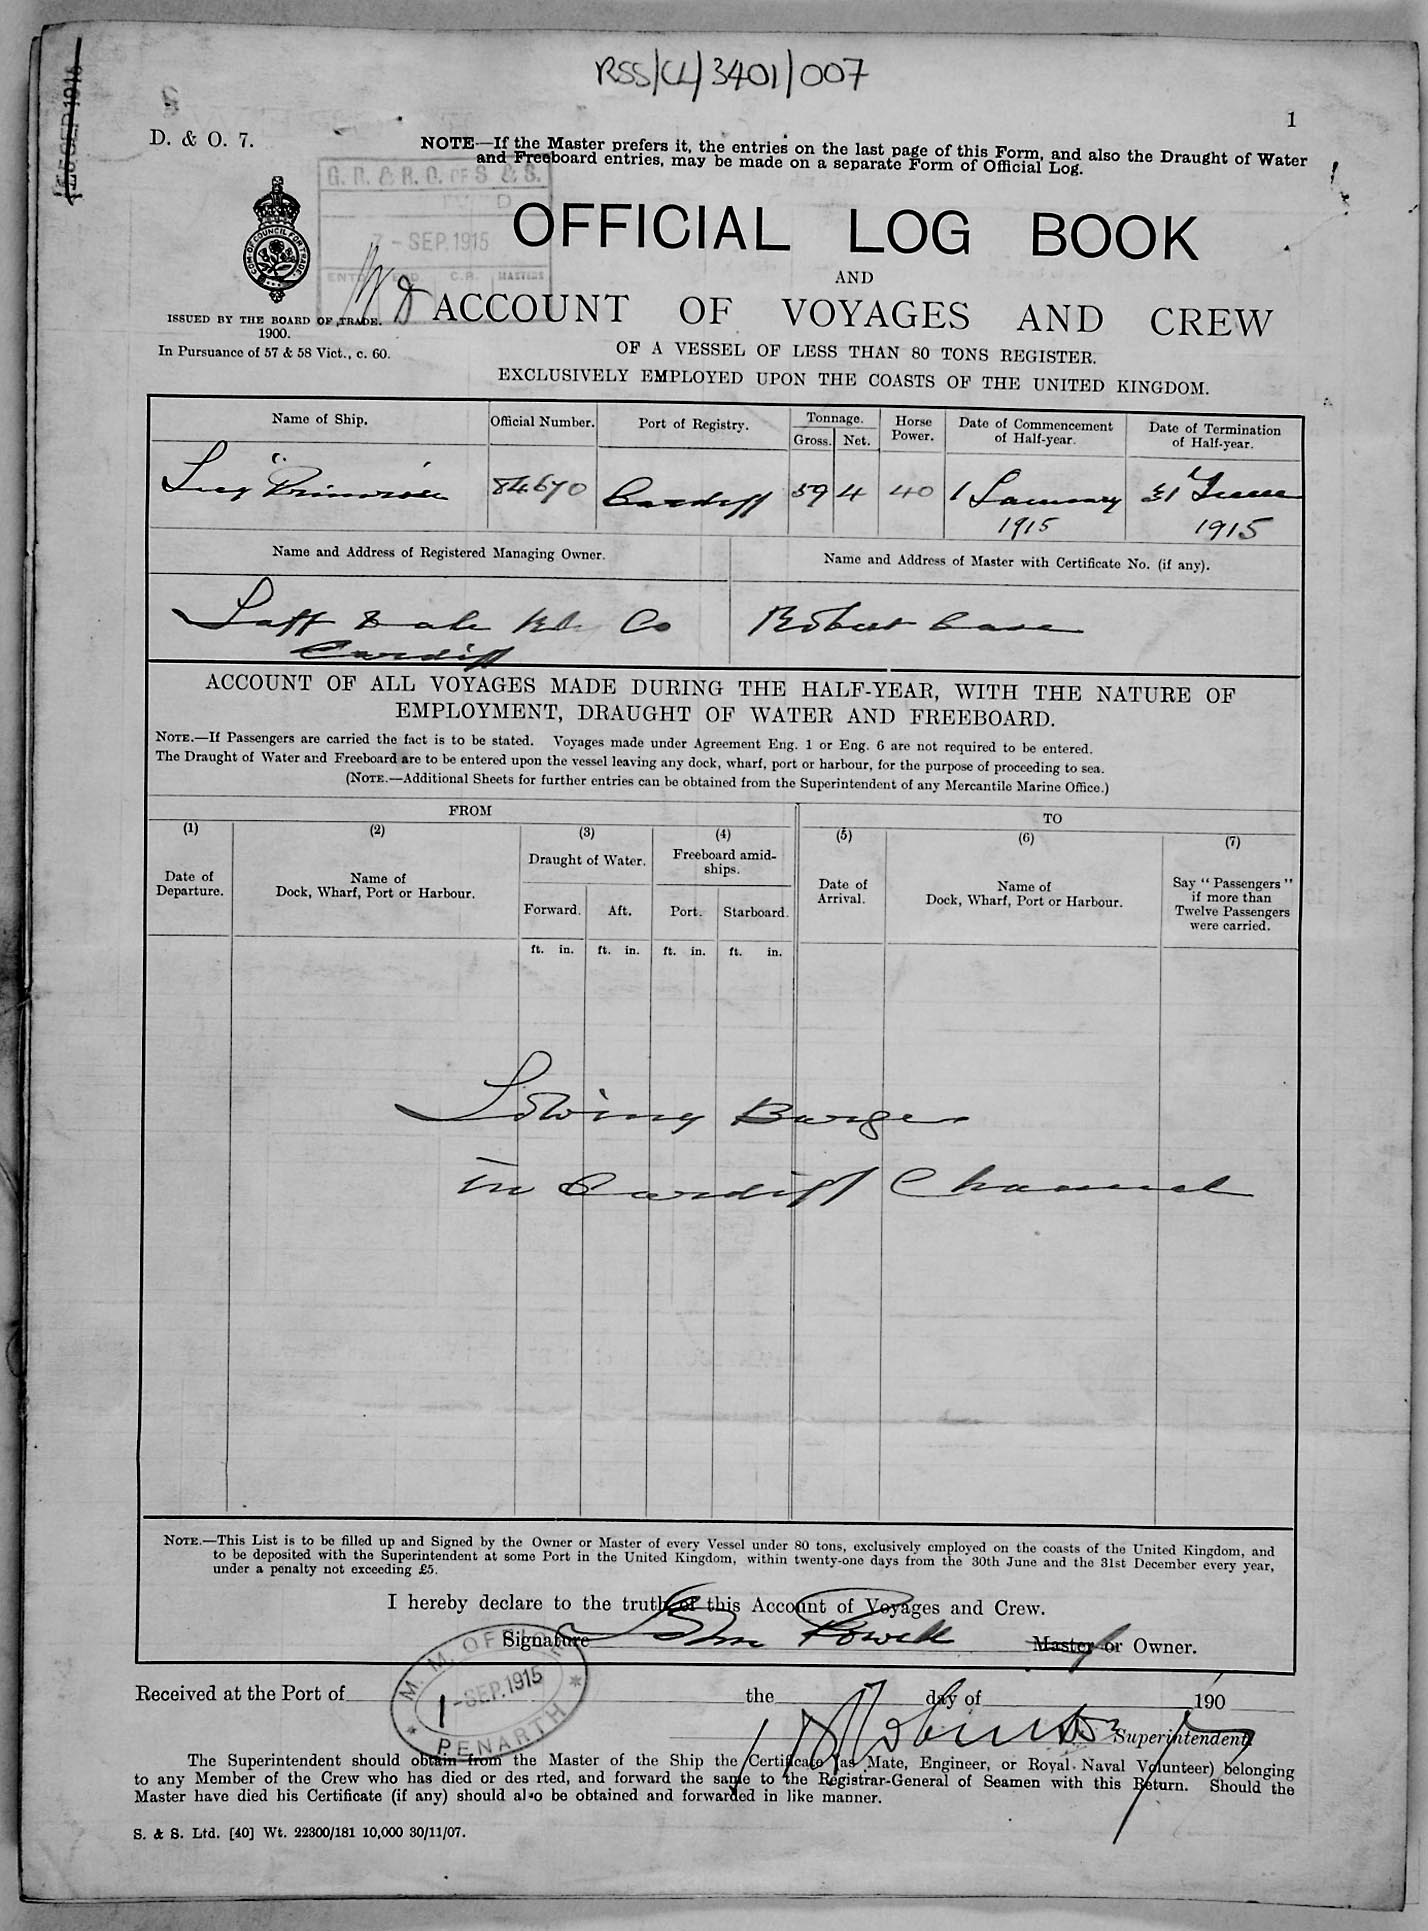 RSS/CL/3401/007
1
D. & O. 7.
NOTE—If the Master prefers it, the entries on the last page of this Form, and also the Draught of Water
and Freeboard entries, may be made on a separate Form of Official Log.
G. R. & R. O. OF S & S.
7 - SEP. 1915
C.R. MASTERS
OFFICIAL LOG BOOK
AND
ACCOUNT OF VOYAGES AND CREW
ISSUED BY THE BOARD OF TRADE.
1900.
In Pursuance of 57 & 58 Vict., c. 60.
OF A VESSEL OF LESS THAN 80 TONS REGISTER.
EXCLUSIVELY EMPLOYED UPON THE COASTS OF THE UNITED KINGDOM.
Name of Ship. Official Number. Port of Registry. Tonnage. Gross. Net. Horse Power. Date of Commencement of Half-year. Date of Termination of Half-year.
"Primrose 84670 Cardiff 59 4 40 1 January 1915 31 June 1915
Name and Address of Registered Managing Owner. Name and Address of Master with Certificate No. (if any).
Taff Vale Co Robert Case
Cardiff
ACCOUNT OF ALL VOYAGES MADE DURING THE HALF-YEAR, WITH THE NATURE OF
EMPLOYMENT, DRAUGHT OF WATER AND FREEBOARD.
NOTE.—If Passengers are carried the fact is to be stated. Voyages made under Agreement Eng. 1 or Eng. 6 are not required to be entered.
The Draught of Water and Freeboard are to be entered upon the vessel leaving any dock, wharf, port or harbour, for the purpose of proceeding to sea.
(NOTE.—Additional Sheets for further entries can be obtained from the Superintendent of any Mercantile Marine Office.)
FROM TO
(1) (2) (3) (4) (5) (6) (7)
Date of Departure. Name of Dock, Wharf, Port or Harbour. Draught of Water. Freeboard amid-ships. Date of Arrival. Name of Dock, Wharf, Port or Harbour. Say "Passengers" if more than Twelve Passengers were carried.
Forward. Aft. Port. Starboard.
ft. in. ft. in. ft. in. ft. in.
Towing Barges
in Cardiff Channel
NOTE.—This List is to be filled up and Signed by the Owner or Master of every Vessel under 80 tons, exclusively employed on the coasts of the United Kingdom, and
to be deposited with the Superintendent at some Port in the United Kingdom, within twenty-one days from the 30th June and the 31st December every year,
under a penalty not exceeding £5.
I hereby declare to the truth of this Account of Voyages and Crew.
Signature John Powell Master or Owner.
M. M. OFFICE
1 - SEP. 1915
PENARTH
Received at the Port of the day of 190
Superintendent.
The Superintendent should obtain from the Master of the Ship the Certificate (as Mate, Engineer, or Royal Naval Volunteer) belonging
to any Member of the Crew who has died or des rted, and forward the same to the Registrar-General of Seamen with this Return. Should the
Master have died his Certificate (if any) should also be obtained and forwarded in like manner.
S. & S. Ltd. [40] Wt. 22300/181 10,000 30/11/07.